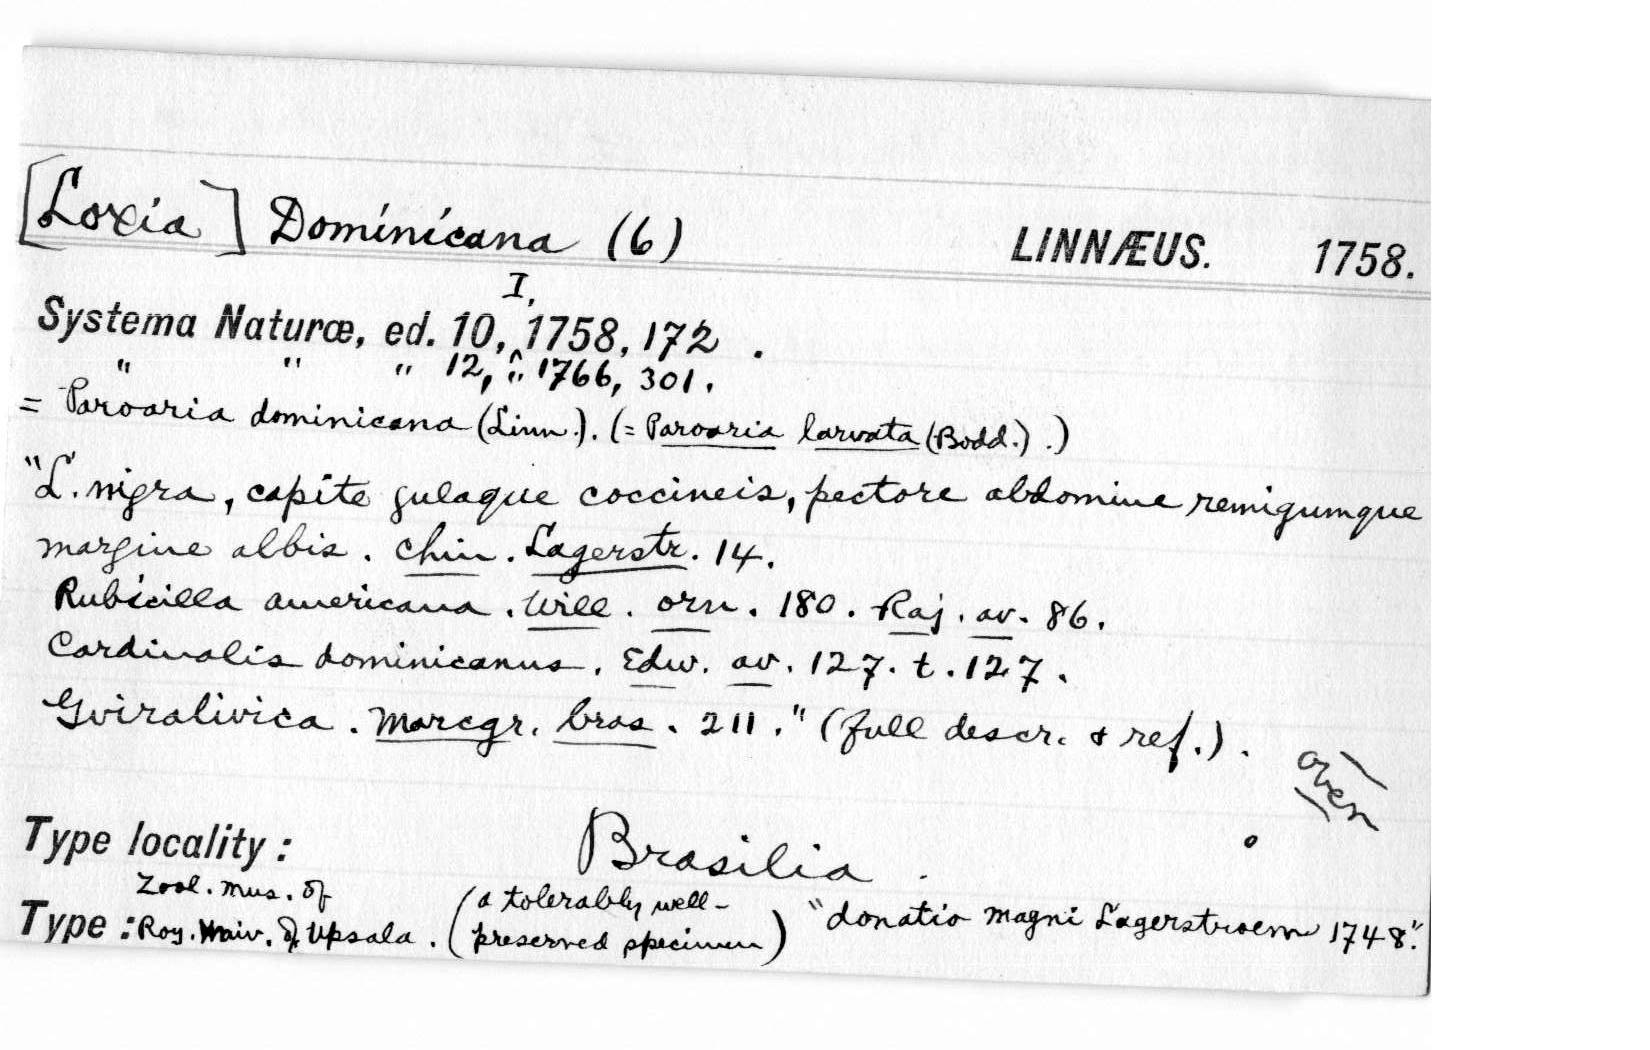 [Loxia] Dominicana (6) LINNÆUS. 1758.
I,
Systema Naturæ, ed. 10, ^ 1758, 172.
" " " 12, " 1766, 301.
= Paroaria dominicana (Linn.). (= Paroaria larvata (Bodd.).)
"L. nigra, capite gulaque coccineis, pectore abdomine remigumque
margine albis. Chin. Lagerstr. 14.
Rubicilla americana. Will. orn. 180. Raj. av. 86.
Cardinalis dominicanus. Edw. av. 127. t. 127.
Gviralivica. Marcgr. bras. 211." (full descr. & ref.).
over
Type locality: Brasilia.
Zool. Mus. of
Type: Roy. Univ. of Upsala. (a tolerably well-
preserved specimen) "donatio Magni Lagerstroem 1748".